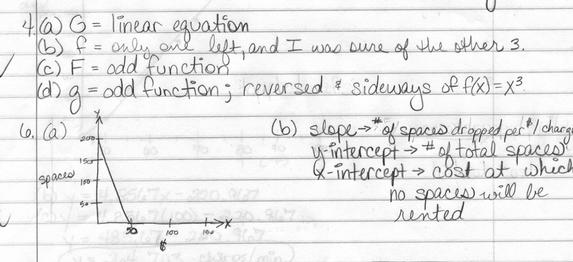 4. (a) G = linear equation
(b) f = only one left, and I was sure of the other 3.
(c) F = odd function
(d) g = odd function; reversed & sideways of f(x)=x³
6. (a)
Y
200
150
100
50
spaces
50
100
150
X
$
(b) slope → # of spaces dropped per $1 charge
y-intercept → # of total spaces
X-intercept → cost at which
no spaces will be
rented